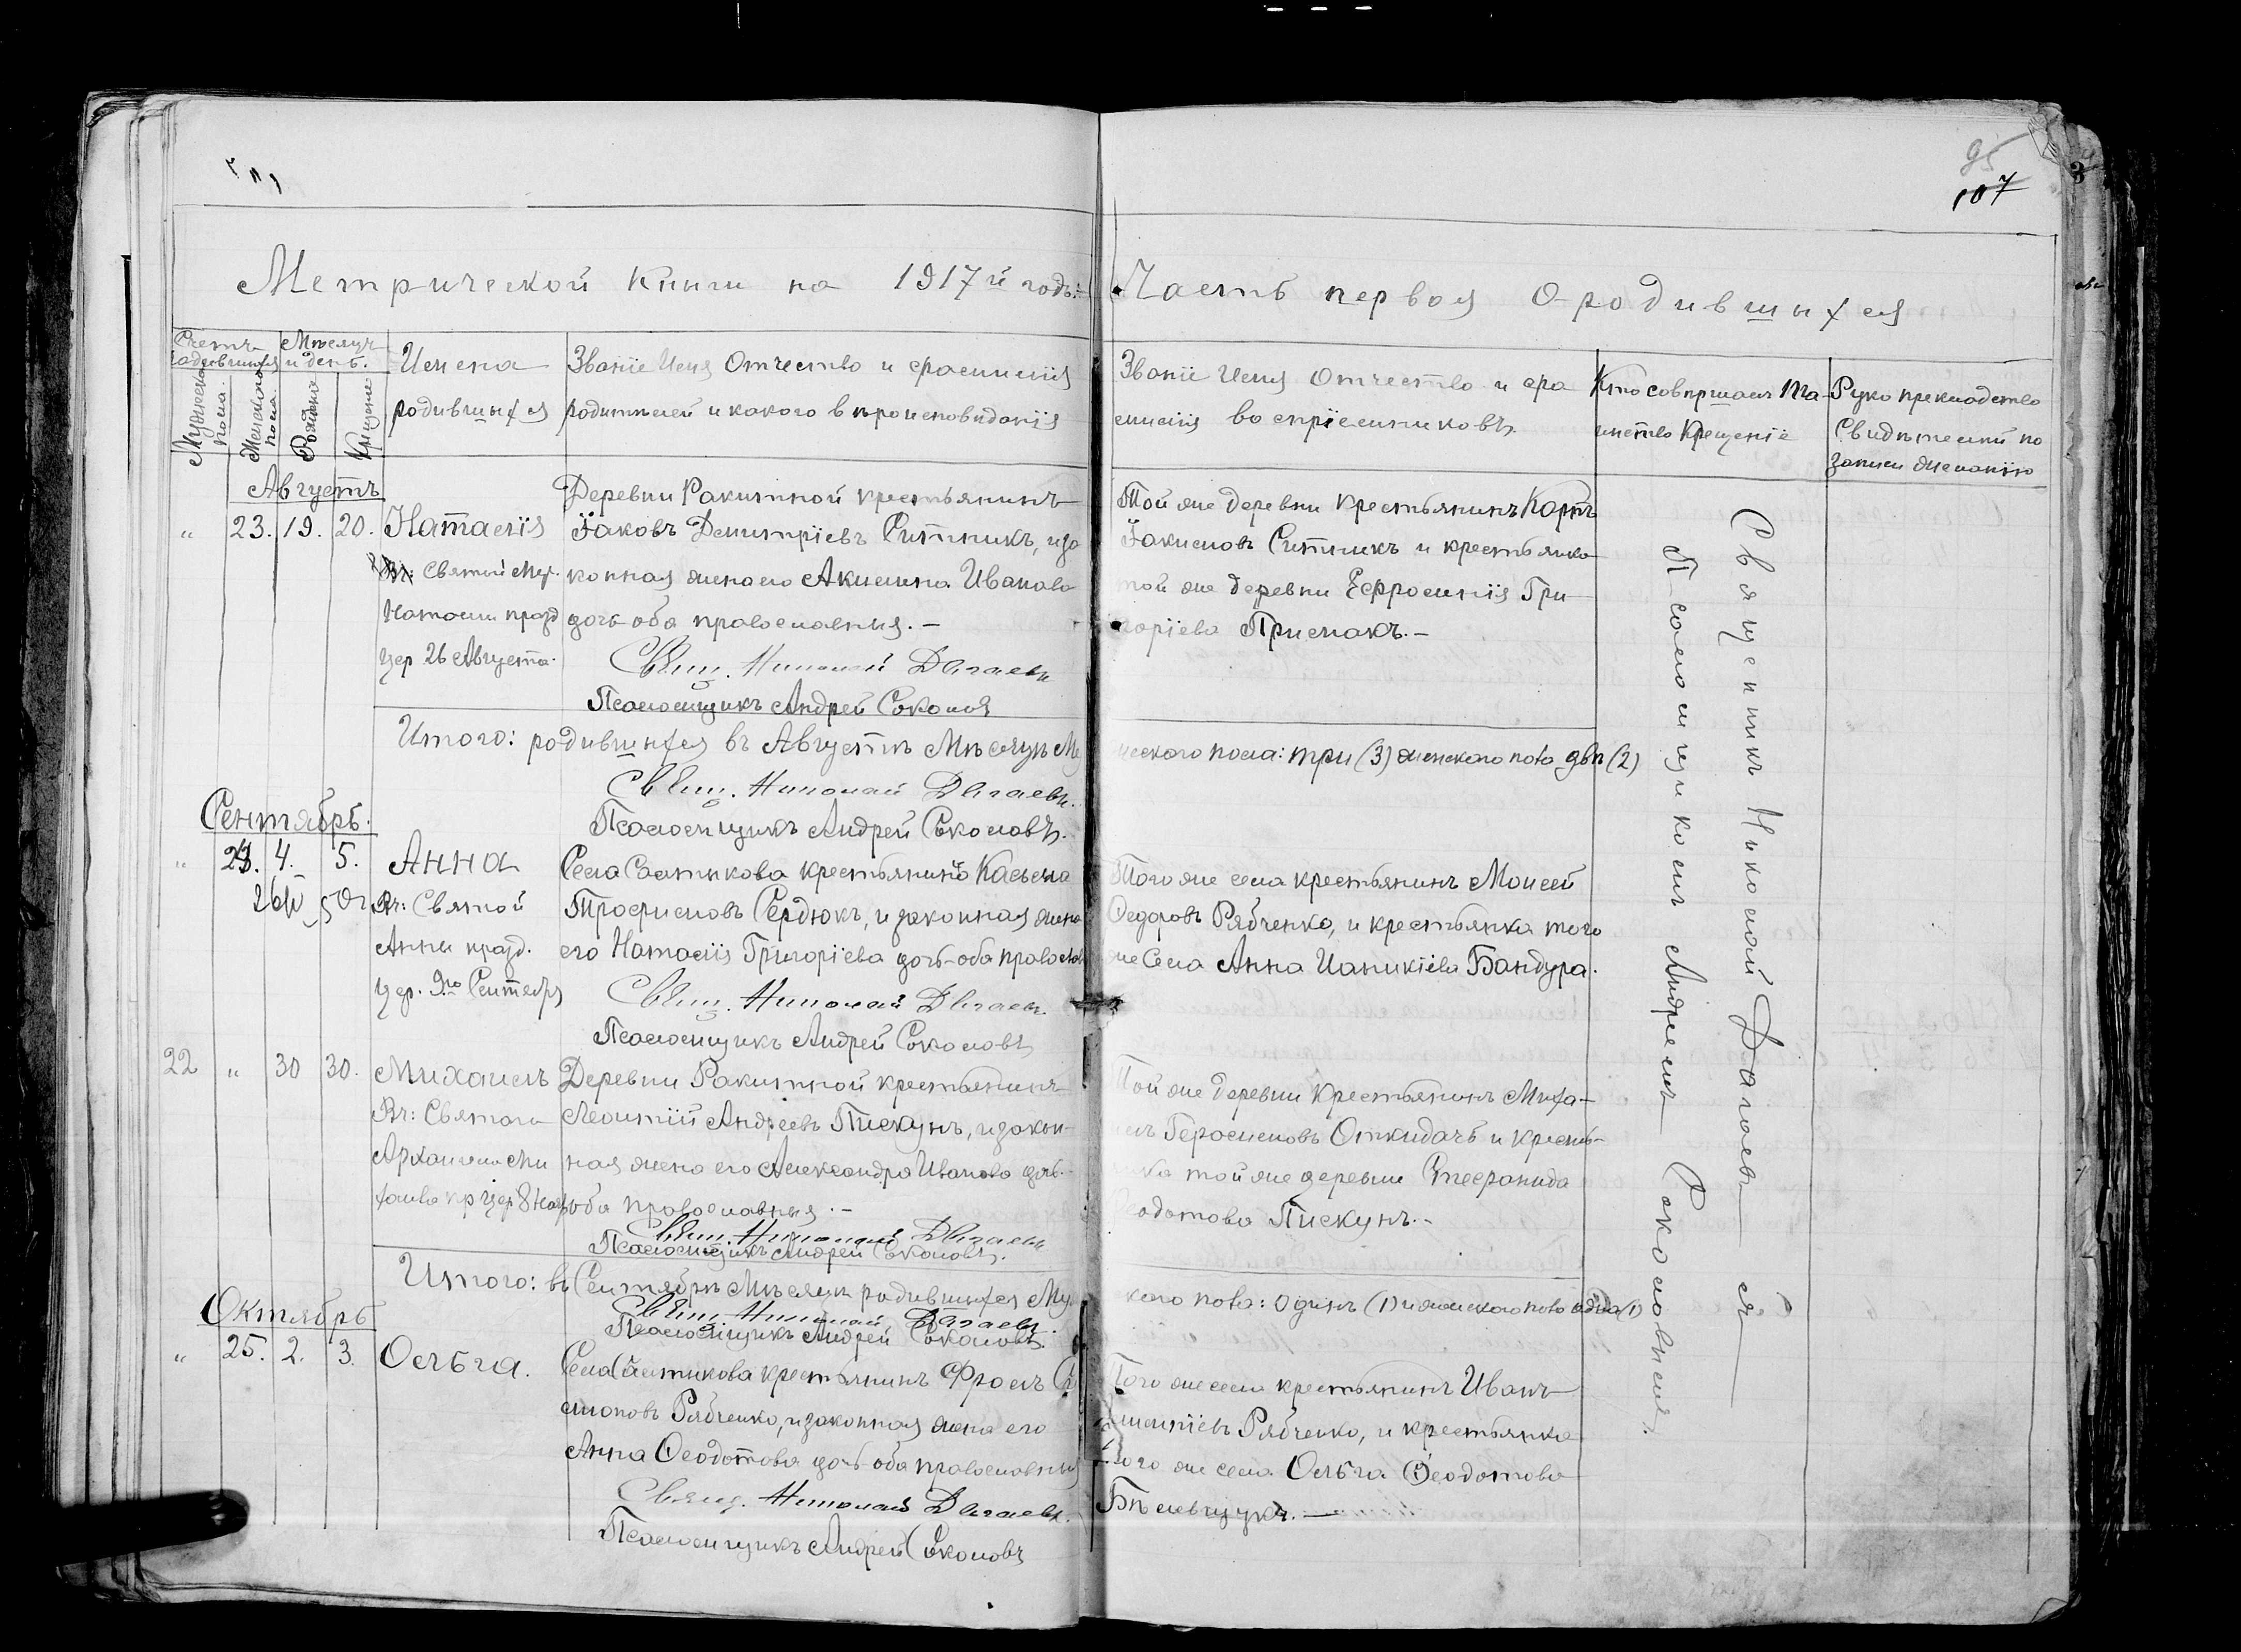 95
107
Метрической Книги на 1917й годъ:
Часть первая О родившихся
Счетъ родившихся
Мѣсяцъ и день.
Мужеска пола
Женскаго пола
Рожденiе
Крещенiе
Имена
родившихся
Званiе Имя Отчество и фамилiя
родителей и какого вѣроисповиданiя
Званiе Имя Отчество и фа
милiя воспрiемниковъ
Кто совершалъ Та-
инство Крещенiе
Рукоприкладство
Свидѣтелей по
записи желанiю
Августъ
„ 23. 19. 20. Наталiя
Св: Святой Муч.
Наталiи празд
цер 26 Августа.
Деревни Ракитной крестьянинъ
Iаковъ Димитрiевъ Ситникъ, и за
конная жена его Акилина Иванова
дочь оба православныя. –
Свящ. Николай Дагаевъ
Псаломщикъ Андрей Соколовъ
Той же деревни крестьянинъ Карпъ
Iакимовъ Ситникъ и крестьянка
той же деревни Ефросинiя Гри
горiева Примакъ. –
Итого: родившихся въ Августѣ Мѣсяцѣ Му
жескаго пола: три (3) женскаго пола двѣ (2)
Свящ. Николай Дагаевъ.
Псаломщикъ Андрей Соколовъ.
Сентябрь.
„ 24. 4. 5. Анна
Вч: Святой
Анны празд.
цер. 9го Сентября
Села Састикова крестьянинъ Касьма
Трофимовъ Сердюкъ, и законная жена
его Наталiя Григорiева дочь-оба православ
Свящ. Николай Дагаевъ.
Псаломщикъ Андрей Соколовъ
Того же села крестьянинъ Моисей
Федоровъ Рябченко, и крестьянка того
же Села Анна Ианикiева Бандура.
22 „ 30 30. Михаилъ
Вч: Святаго
Архангела Ми
хаила пр цер 8 Нояб
Деревни Ракитной крестьянинъ
Леонтiй Андреевъ Пискунъ, и закон-
ная жена его Александра Иванова дочь-
оба православныя. –
Свящ. Николай Дагаевъ
Псаломщикъ Андрей Соколовъ.
Той же деревни Крестьянинъ Миха-
илъ Герасимовъ Откидачъ и кресть-
янка той же деревни Стефанида
Феодотова Пискунъ. -
Итого: въ Сентябрѣ Мѣсяцѣ родившихся Муж
скаго пола: Одинъ (1) и женскаго пола одна (1)
Свящ. Николай Дагаевъ.
Псаломщикъ Андрей Соколовъ.
Октябрь
„ 25. 2. 3. Ольга.
Села Састикова крестьянинъ Фролъ
Рябченко, и законная жена его
Анна Феодотова дочь-оба православныя
Свящ. Николай Дагаевъ.
Псаломщикъ Андрей Соколовъ
Того же села крестьянинъ Иванъ
Рябченко, и крестьянка
того же села Ольга Феодотова
Бѣлевцукъ. —
Священникъ Николай Дагаевъ съ
Псаломщикомъ Андреемъ Соколовымъ.